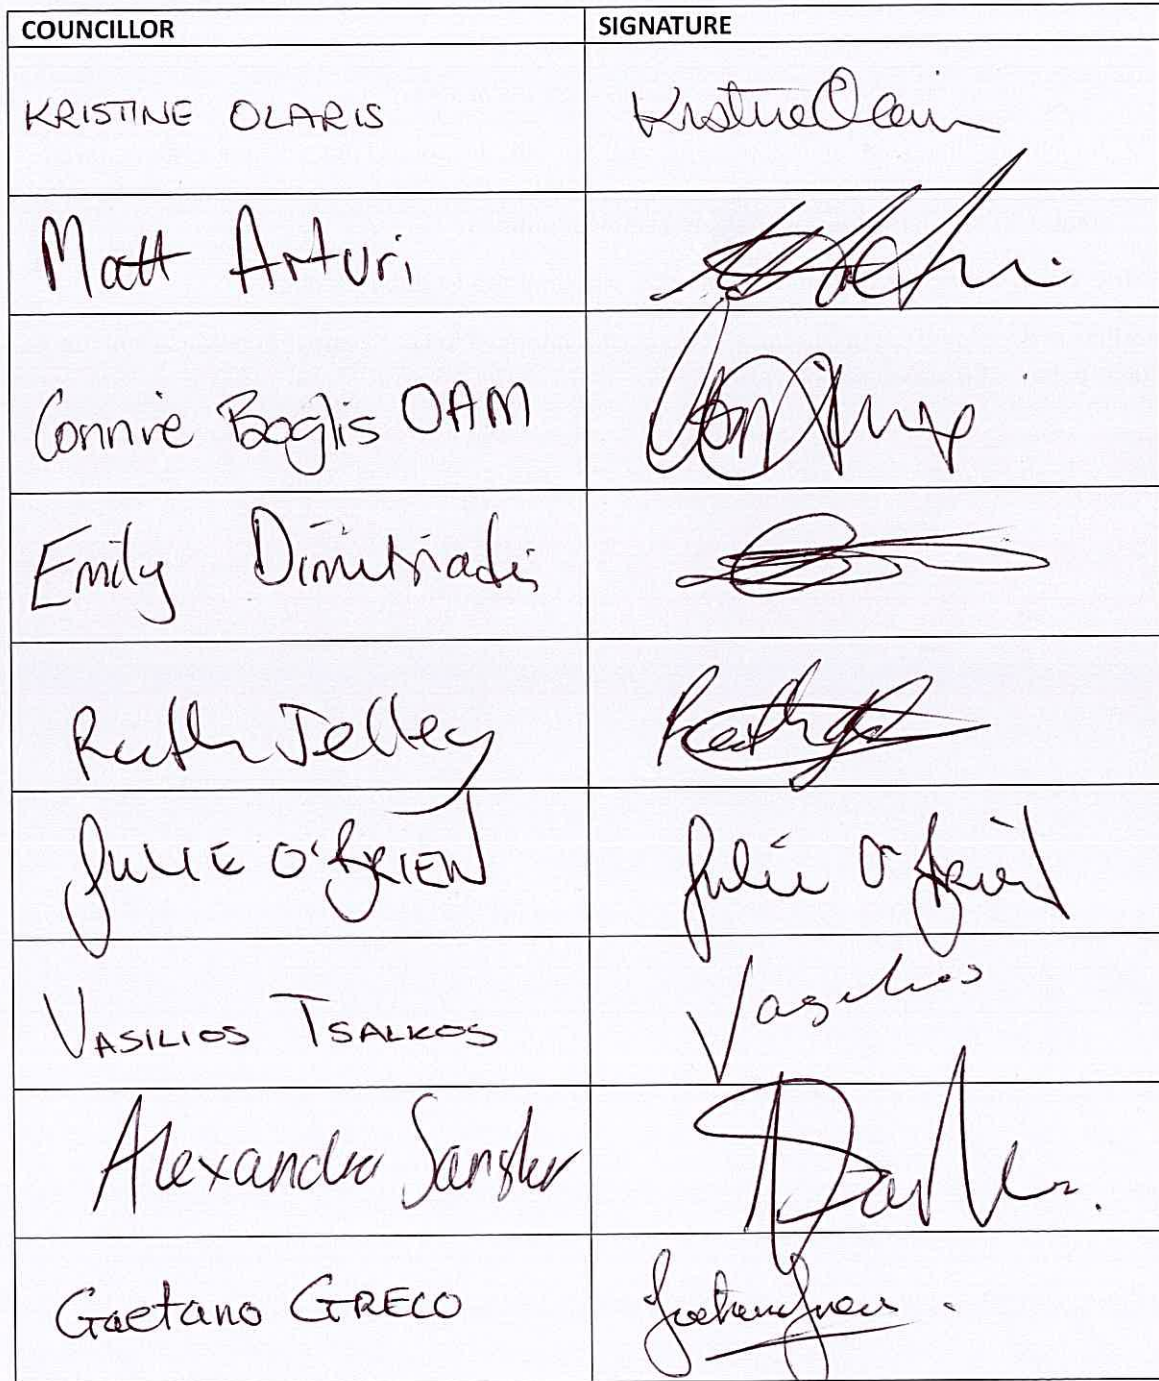 COUNCILLOR SIGNATURE
KRISTINE OLARIS Kristine Olaris
Matt Arturi
Connie Boglis OAM
Emily Dimitriadis
Ruth Jelley Ruth
JULIE O'BRIEN Julie O'Brien
VASILIOS TSALKOS Vasilios
Alexandra Sangster
Gaetano GRECO Gaetano Greco